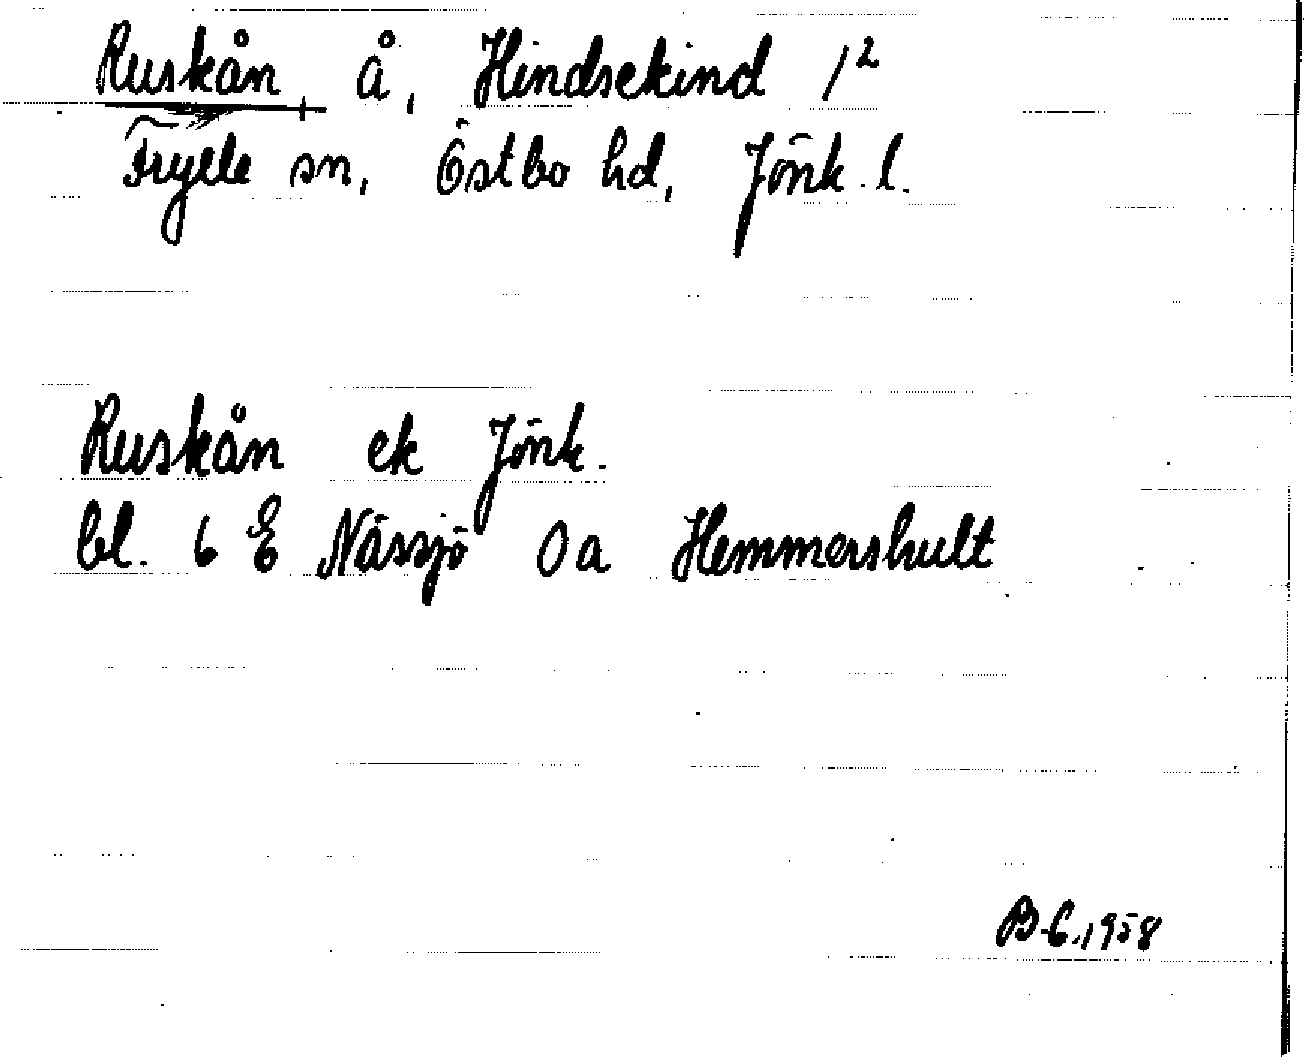 Ruskån, å, Hindsekind 1²
Fryele sn, Östbo hd, Jönk. l.
Ruskån ek Jönk.
bl. 6 E Nässjö 0a Hemmershult
B.C. 1958